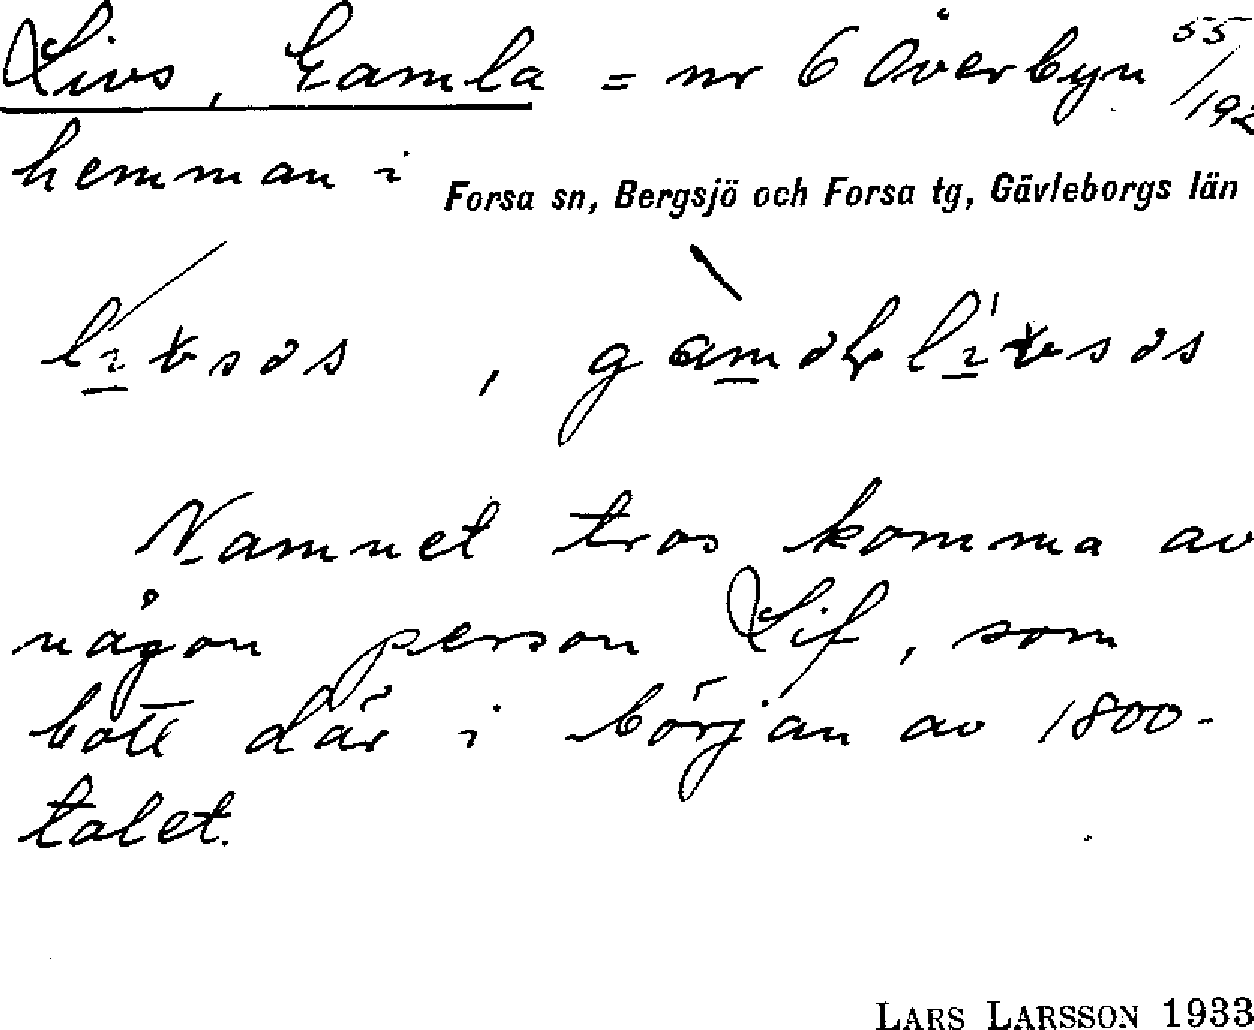 Livs, Gamla = nr 6 Överbyn 55/192
hemman i Forsa sn, Bergsjö och Forsa tg, Gävleborgs län
Namnet tros komma av
någon person Lif, som
bott där i början av 1800-
talet.
LARS LARSSON 1933